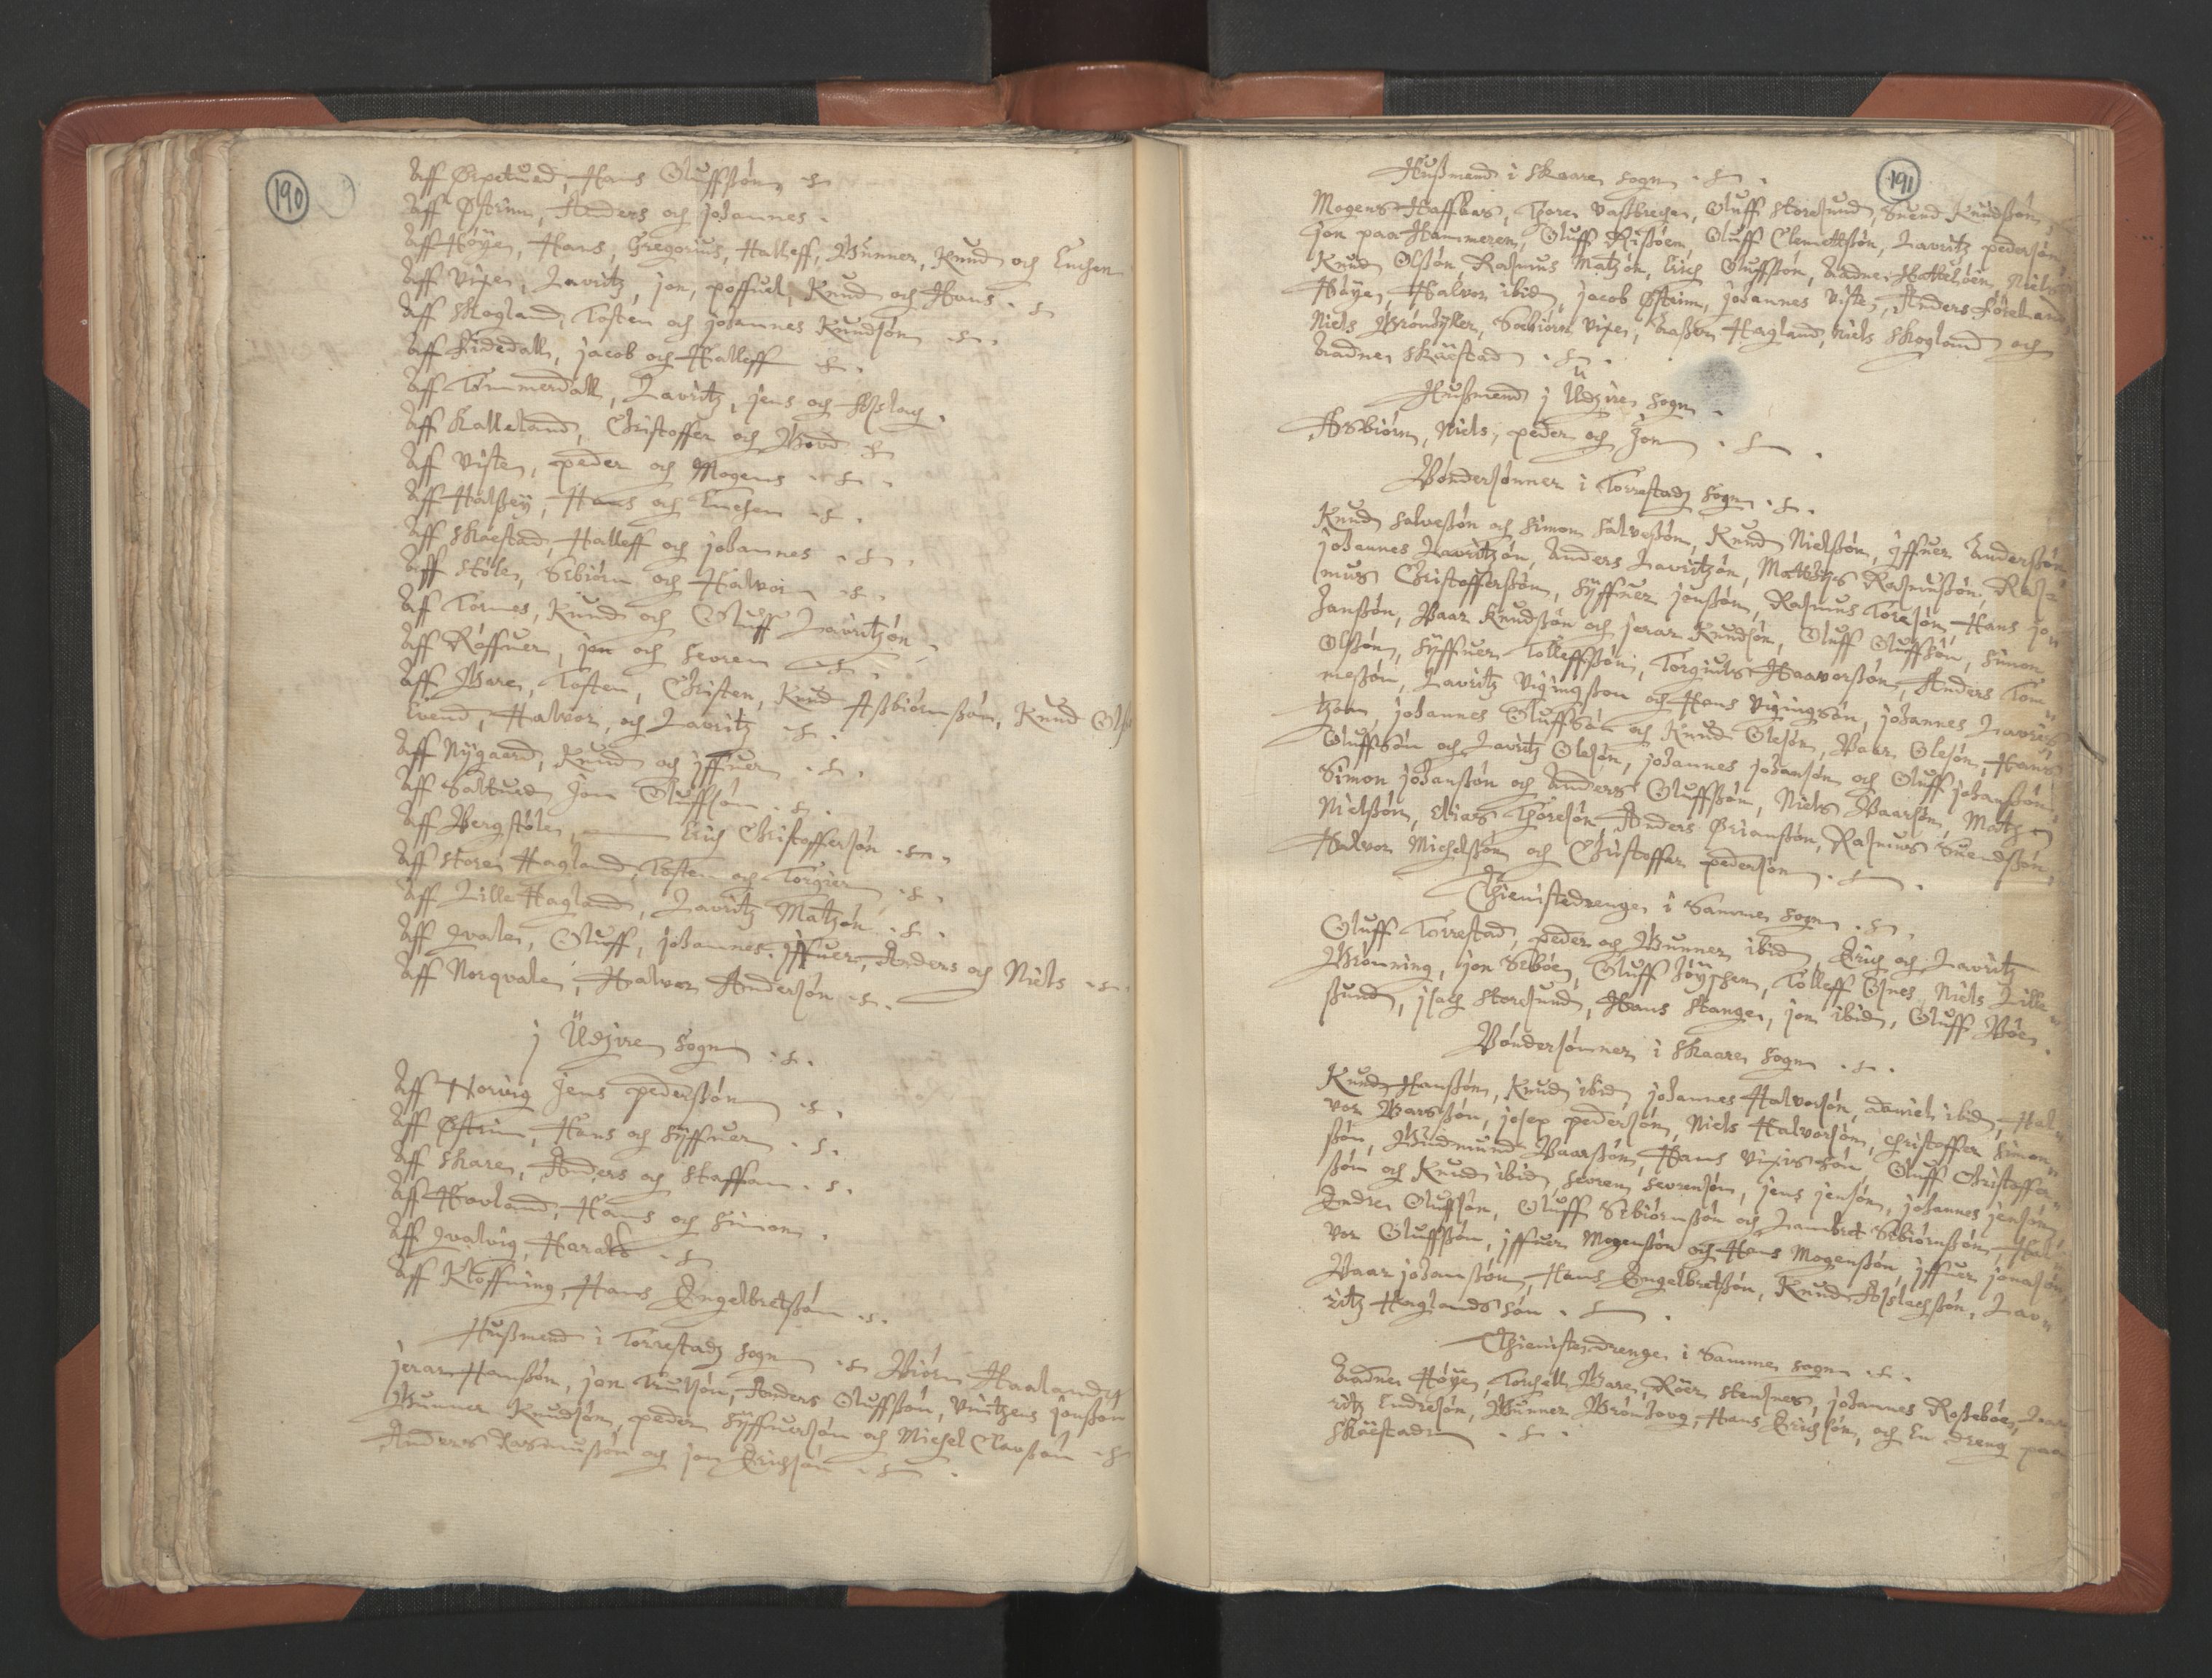 190
Aff Ørpetued, Hans Oluffssøn
Aff Østrim, Anders och johannes.
Aff Høye, Hans, Gregorius, Halleff, Gunner, Knud och Euchen
Aff Vixe, Lavritz, jon, poffuel, Knud och Hans
Aff Skogland, Tosten och johannes Knudsøn
Aff Sidedall, jacob och Halleff
Aff Tømmerdall, Lavritz, jens och Asslach.
Aff Kalleland, Christoffer och Gord
Aff Viste, peder och Mogens
Aff Halssey, Hans och Euchen
Aff Skaestad, Halleff och johannes
Aff støle, Sebiørn och Halvor
Aff Tornes, Knud och Oluff Lavritzøn
Aff Røffuer, jon och seoren
Aff Gare, Tosten, Christen, Knud Assbiørnssøn, Knud Ols
Evend, Halvor, och Lavritz
Aff Nygaard, Knud och jffuer
Aff Saltued jon Oluffsøn
Aff Bergstøle, Erich Christoffersøn
Aff store Hagland, Tosten och Torgier
Aff Lille Hagland, Lavritz Matzøn
Aff Qvale, Oluff, johannes, jffuer, Anders och Niels
Aff Norqvale, Halvor Andersøn
j Udzire sogn
Aff Norvig jens pederssøn
Aff Østrim, Hans och Syffuer
Aff Skare, Anders och Staffan
Aff Hovland, Hans och Simon
Aff Qvalvig, Harald
Aff Kloffning, Hans Engelbretssøn
Hussmend i Torrestadz sogn Biørn Haaland
jerar Hanssøn, jon Truelsøn, Anders Oluffssøn, Vintzens jonssøn
Gunner Knudsøn, peder Syffuersøn och Michel Clavssøn
Anders Rasmussøn och jon Erichsøn
191
Hussmend i Skaare sogn
Mogens Haffbas, Thore vassbreche, Oluff storesund, Svend Knudssøn,
jon paa Hammeren, Oluff Rissøen Oluff Clemettssøn, Lavritz pedersøn,
Knud Olssøn, Rasmus Matzøn, Erich Oluffssøn, Aadne Hatteløen, Niels
Høye, Halvor ibid, jacob Østrim, johannes Viste, Anders Føreland
Niels Brøndyller, Sebiørn Vixe, Aassen Hagland, Niels Skogland och
Aadne Skaestad
Hussmend j Udzire sogn
Asbiørn, Niels, peder och jon
Bøndersønner i Torrestadz sogn
Knud salvessøn och Simon salvessøn, Knud Nielssøn, jffuer Anderssøn
johannes Lavritzøn, Anders Lavritzøn, Matthis Rasmussøn, Ras=
mus Christofferssøn, Syffuer jonssøn, Rasmus Toresøn, Hans jon
Janssøn, Baar Knudssøn och jerar Knudsøn, Oluff Oluffssøn, Simon
Olssøn, Syffuer Tolleffssøn, Torgiuls Haavorssøn, Anders Tom=
messøn, Lavritz Vigingsson och Hans Vigingsøn, johannes Lavrid=
tzøn, johannes Oluffsøn och Knud Olesøn, Baar Olesøn, Hans
Oluffsøn och Lavritz Olesøn, johannes johansøn och Oluff johanssøn,
Simon johanssøn och Anders Oluffssøn, Niels Baarsøn, Matz
Nielssøn, Elias Thoresøn Anders Ørianssøn, Rasmus Svendssøn,
Halvor Michelssøn och Christoffer pedersøn
Thienistedrenge i Samme sogn
Oluff Torrestad, peder och Gunner ibid, Erich och Lavritz
Grønning, jon Sebøe, Oluff Høyschen, Tolleff Osnes Niels Lille=
ssund, jsach Storesund, Hans Stange, jon ibid, Oluff Bøe.
Bøndersønner i Skaare sogn
Knud Hanssøn, Knud ibid johannes Halvorsøn, daniel ibid, Hal=
vor Barssøn, josep pedersøn, Niels Halvorsøn, Christoffer Simon=
ssøn, Gudmund Baarssøn, Hans Vixissøn, Oluff Christoffer=
ssøn och Knud ibid, Seoren Seorensøn, jens jensøn, johannes jensøn,
Endre Oluffsøn, Oluff Sebiørnssøn och Lambret Sebiørnssøn, Hal=
vor Oluffssøn, jffuer Mogenssøn och Hans Mogenssøn, jffuer jonasøn,
Baar johanssøn, Hans Engelbretssøn, Knud Asslachssøn, Lav=
ritz Haglandssøn
Thienistedrenge i Samme sogn
Aadne Høye, Torchell Gare, Røer Stensnes, johannes Rossebøe, Lav
ritz Endresøn, Gunner Grønhovg, Hans Erichsøn, och En dreng paa
Skaestad